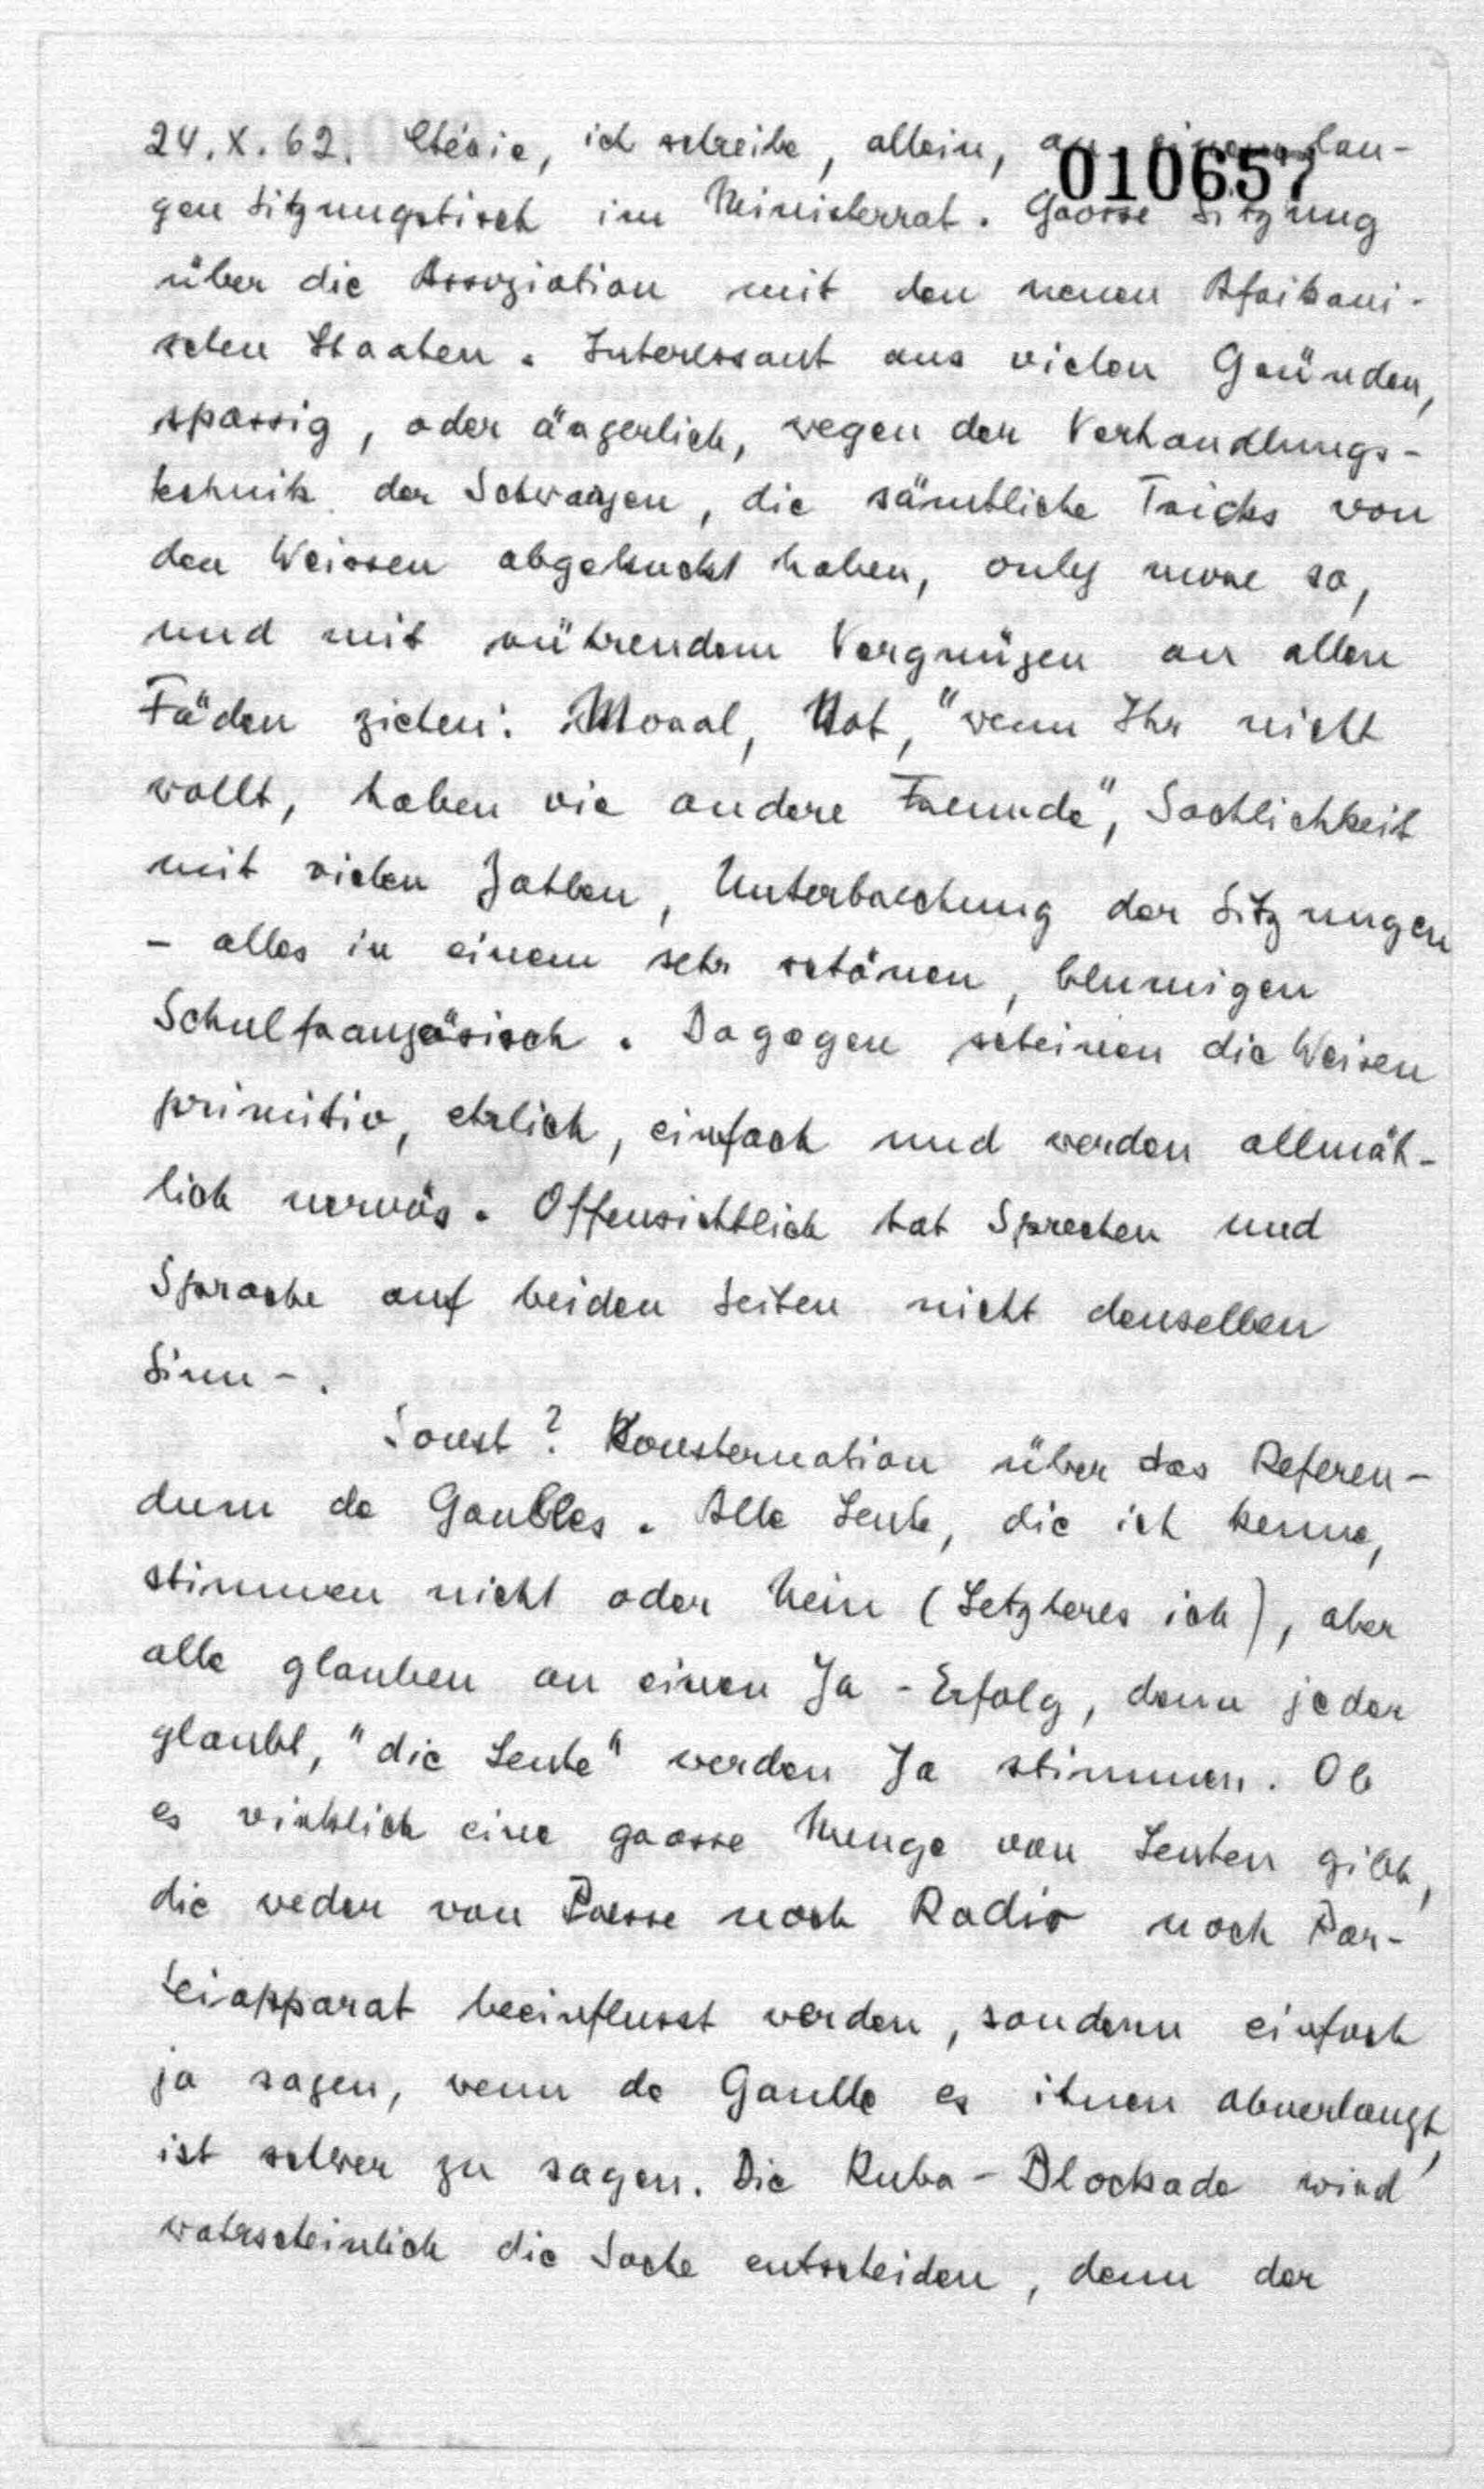 24.X.62. Chérie, ich schreibe, allein, an einem lan-
010657
gen Sitzungstisch im Ministerrat. Grosse Sitzung
über die Assoziation mit den neuen Afrikani-
schen Staaten. Interessant aus vielen Gründen,
spassig, oder ärgerlich, wegen der Verhandlungs-
technik der Schwarzen, die sämtliche Tricks von
den Weissen abgekuckt haben, only more so,
und mit rührendem Vergnügen an allen
Fäden ziehen: Moral, Not, "wenn Ihr nicht
wollt, haben wir andere Freunde", Sachlichkeit
mit vielen Zahlen, Unterbrechung der Sitzungen
- alles in einem sehr schönen, blumigen
Schulfranzösisch. Dagegen scheinen die Weisen
primitiv, ehrlich, einfach und werden allmäh-
lich nervös. Offensichtlich hat Sprechen und
Sprache auf beiden Seiten nicht denselben
Sinn -.
Sonst? Konsternation über das Referen-
dum de Gaulles. Alle Leute, die ich kenne,
stimmen nicht oder Nein (Letzteres ich), aber
alle glauben an einen Ja-Erfolg, denn jeder
glaubt, "die Leute" werden Ja stimmen. Ob
es wirklich eine grosse Menge von Leuten gibt,
die weder von Presse noch Radio noch Par-
teiapparat beeinflusst werden, sondern einfach
ja sagen, wenn de Gaulle es ihnen abverlangt,
ist schwer zu sagen. Die Kuba-Blockade wird
wahrscheinlich die Sache entscheiden, denn der